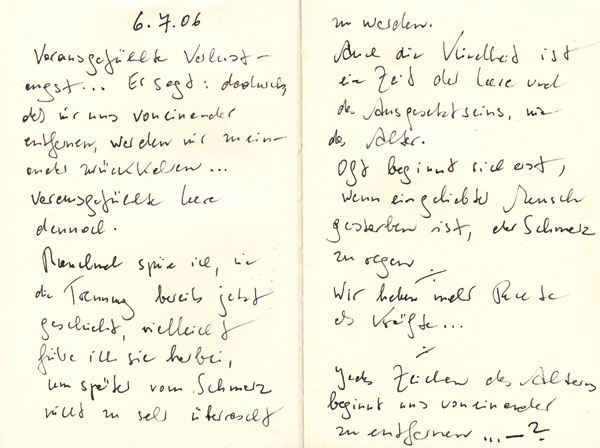 6.7.06
Vorausgefühlte Verlust-
angst... Er sagt: dadurch,
daß wir uns voneinander
entfernen, werden wir zuein-
ander zurückkehren...
Vorausgefühlte Leere
dennoch.
Manchmal spüre ich, wie
die Trennung bereits jetzt
geschieht, vielleicht
führe ich sie herbei,
um später vom Schmerz
nicht zu sehr überrascht
zu werden.
Auch die Kindheit ist
eine Zeit der Leere und
des Ausgesetztseins, wie
das Alter.
Oft beginnt sich erst,
wenn ein geliebter Mensch
gestorben ist, der Schmerz
zu regen
Wir haben mehr Rechte
als Kräfte...
Jedes Zeichen des Alterns
beginnt uns voneinander
zu entfernen ... – ?